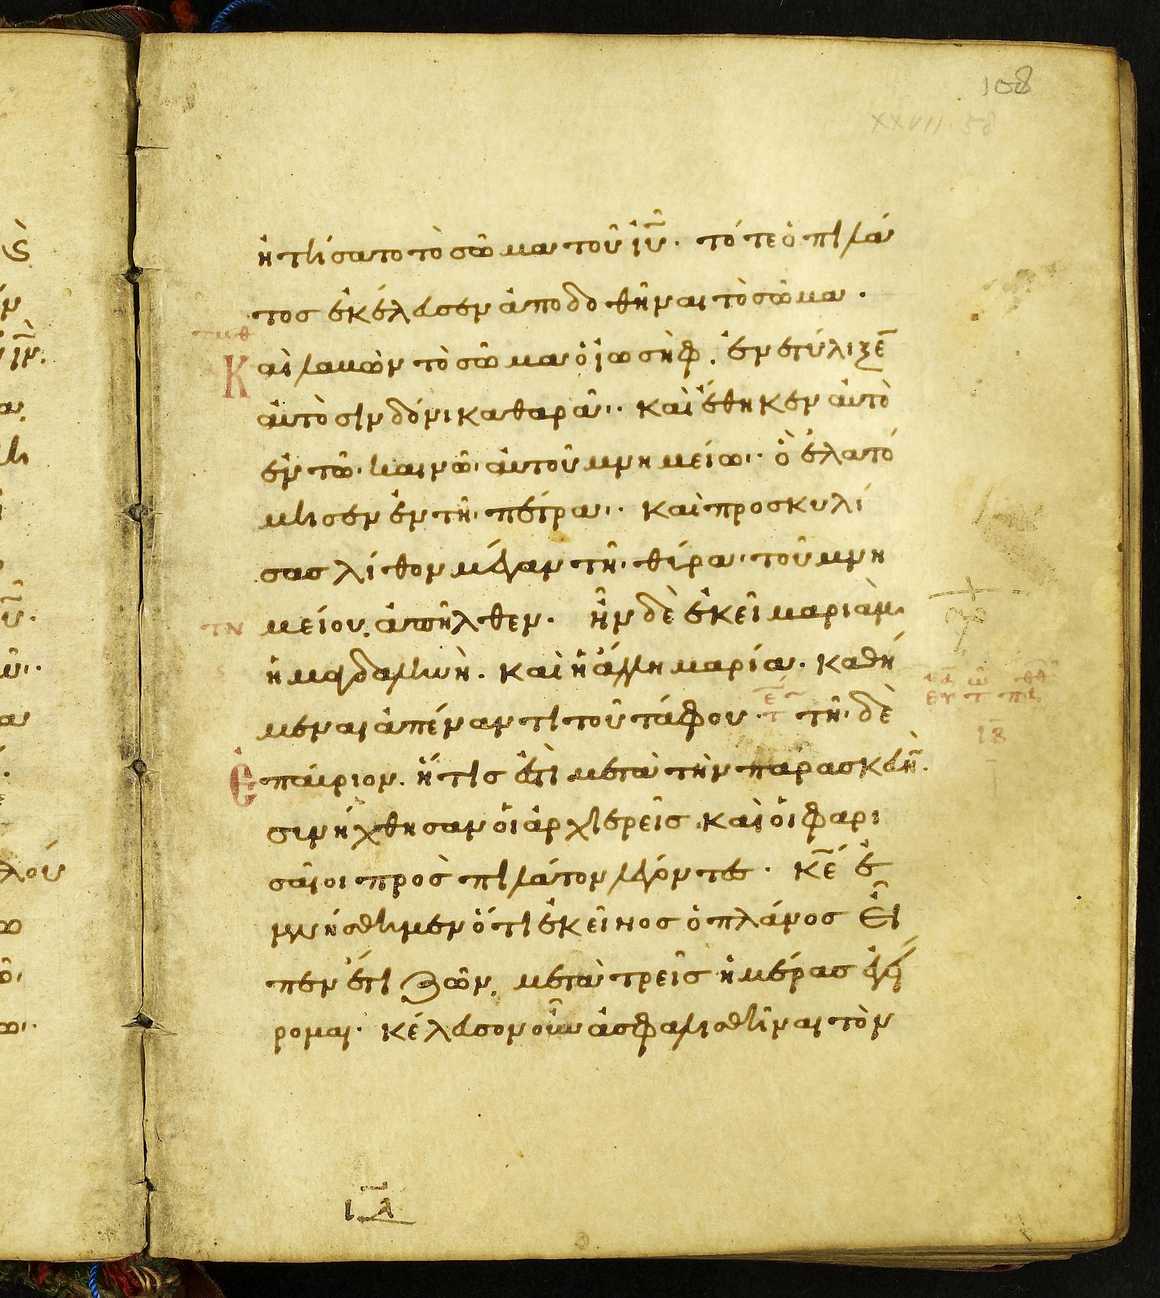 108
XXVII. 58
ἠτήσατο τὸ σῶμα τοῦ ἰῦ. τότε ὁ πιλά
τος ἐκέλευσεν ἀποδοθῆναι τὸ σῶμα.
τμθ
Καὶ λαβὼν τὸ σῶμα ὁ ἰωσὴφ. ἐνετύλιξε̅
αὐτὸ σινδόνι καθαρᾶ. καὶ ἔθηκεν αὐτὸ
ἐν τῶ καινῶ αὐτοῦ μνημείω. ὃ ἐλατό
μησεν ἐν τῆ πέτρα. καὶ προσκυλί
σας λίθον μέγαν τῆ θύρα τοῦ μνη
τν μείου, ἀπῆλθεν. ἦν δὲ ἐκεῖ μαριὰμ
ἡ μαγδαληνὴ. καὶ ἡ ἄλλη μαρία. καθή
μεναι ἀπέναντι τοῦ τάφου. τῆ δὲ
ἐπαύριον. ἥτις ἐστὶ μετὰ τὴν παρασκευὴν.
συνήχθησαν οἱ ἀρχιερεῖς καὶ οἱ φαρι
σαῖοι πρὸς πιλάτον λέγοντες. κε̅ ἐ
μνήσθημεν ὅτι ἐκεῖνος ὁ πλάνος εἶ
πεν ἔτι ζῶν, μετὰ τρεῖς ἡμέρας ἐγεί
ρομαι. κέλευσον οὖν ἀσφαλισθῆναι τὸν
ιδ̅